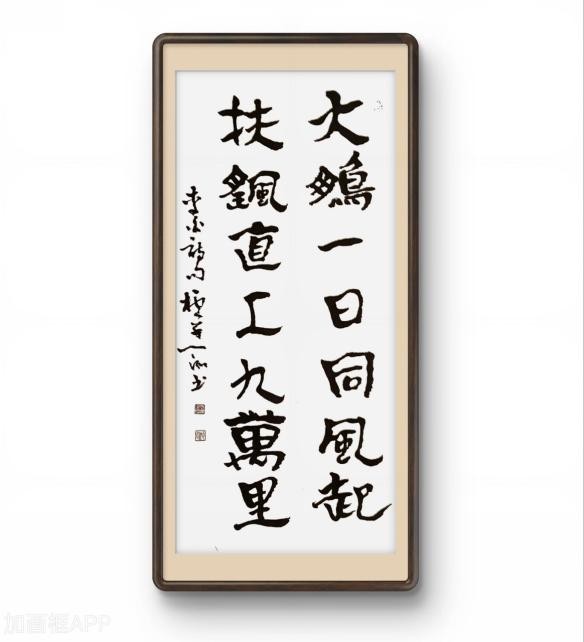 大鵬一日同風起
扶颻直上九萬里
李白詩句 書
加画框APP